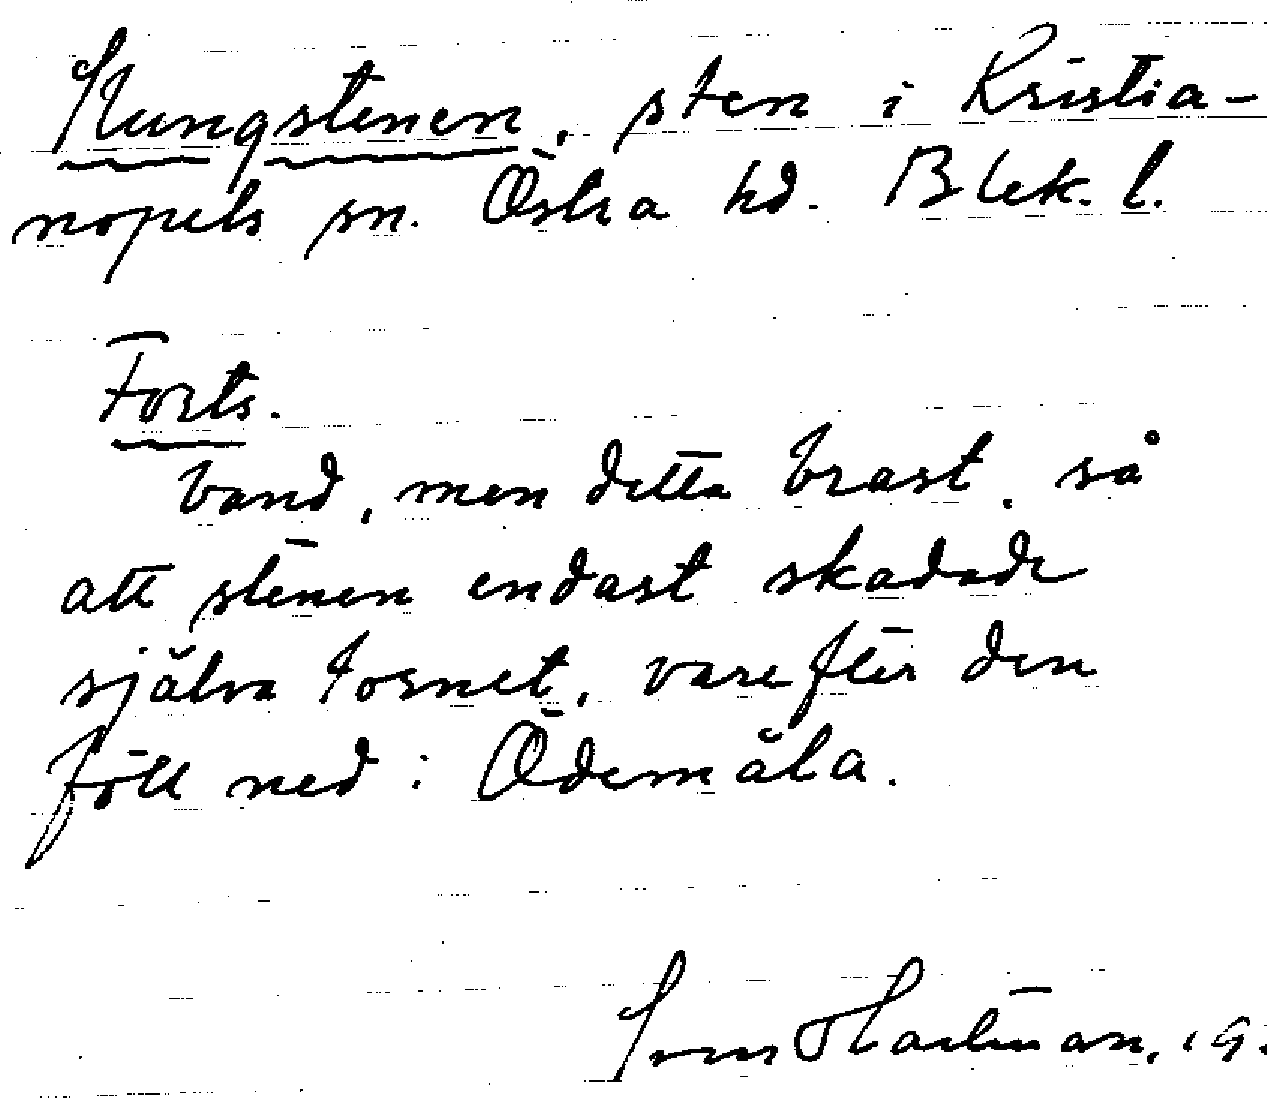 Slungstenen, sten i Kristia-
nopels sn. Östra hd. Blek. l.
Forts.
band, men detta brast, så
att stenen endast skadade
själva tornet, varefter den
föll ned i Ödemåla.
Sven Hartman, 19